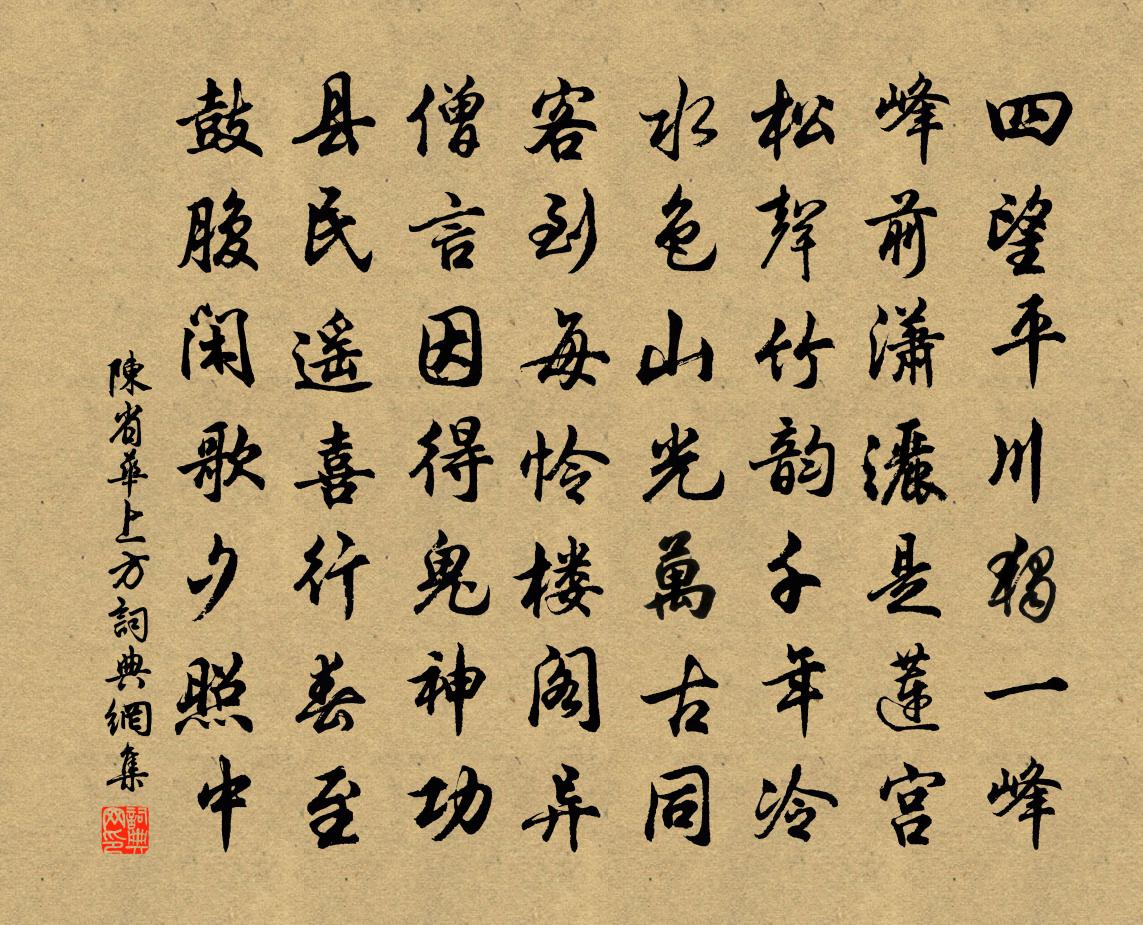 四望平川独一峰
峰前潇灑是莲宫
松聲竹韵千年冷
水色山光萬古同
客到每怜楼阁异
僧言因得鬼神功
县民遥喜行春至
鼓腹闲歌夕照中
陳省華上方詞典網集
詞典网印